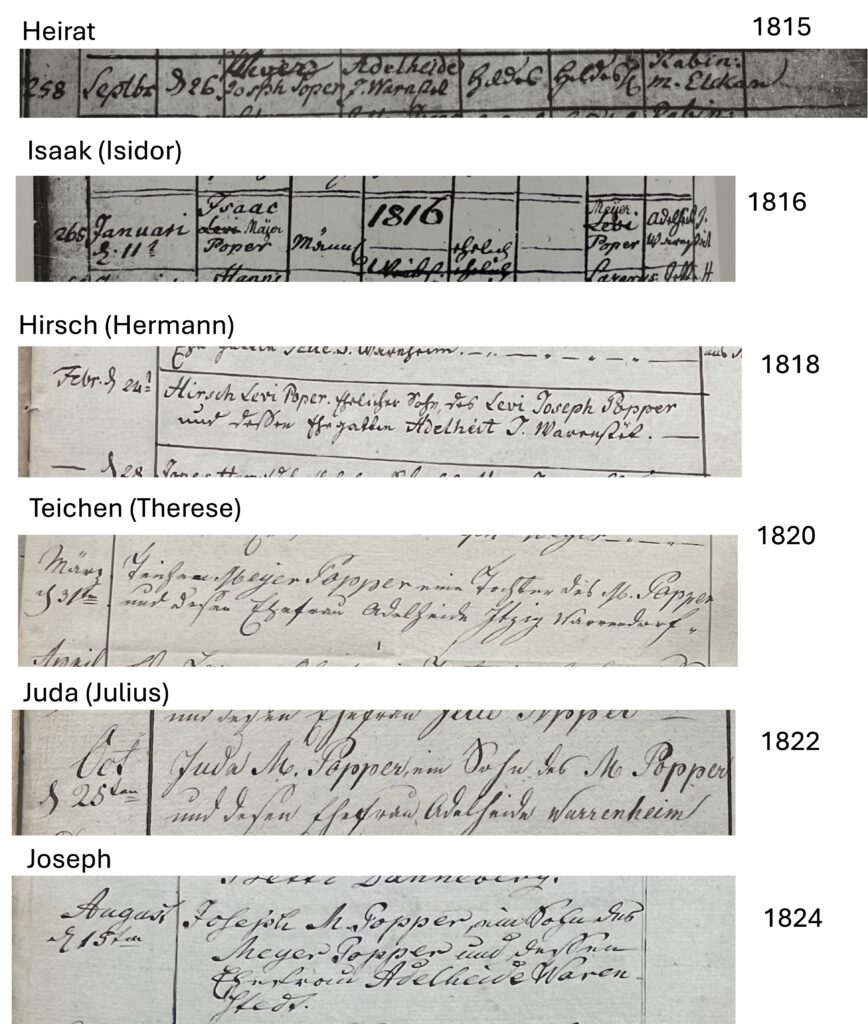 Heirat
1815
258 Septbr d 26 Meyer Joseph Poper Adelheide J. Warnstet Heldes Heldes Rabin: m. Elckan
Isaak (Isidor)
1816
265 Januari d. 11t Isaac Levi Mäyer Poper Mänl 1816 ehrlich Meyer Levi Poper Adelheit J.
Hirsch (Hermann)
1818
Febr. d 24t Hirsch Levi Poper. Ehrlicher Sohn, des Levi Joseph Popper
und dessen Ehegattin Adelheit J. Warenstät. —
— d 28
Teichen (Therese)
1820
März Teichen Meyer Popper eine Tochter des M. Popper
d 31ten und desen Ehefrau Adelheide Itzig Warrendorf
April
Juda (Julius)
1822
und desen Ehefrau Jette Popper —
Oct Juda M. Popper, ein Sohn des M Popper
d 25ten und desen Ehefrau Adelheide Warrenheim
Joseph
1824
Betti Danneberg.
August Joseph M Popper, ein Sohn des
d 15ten Meyer Popper und dessen
Ehefrau Adelheide Waren-
stedt.